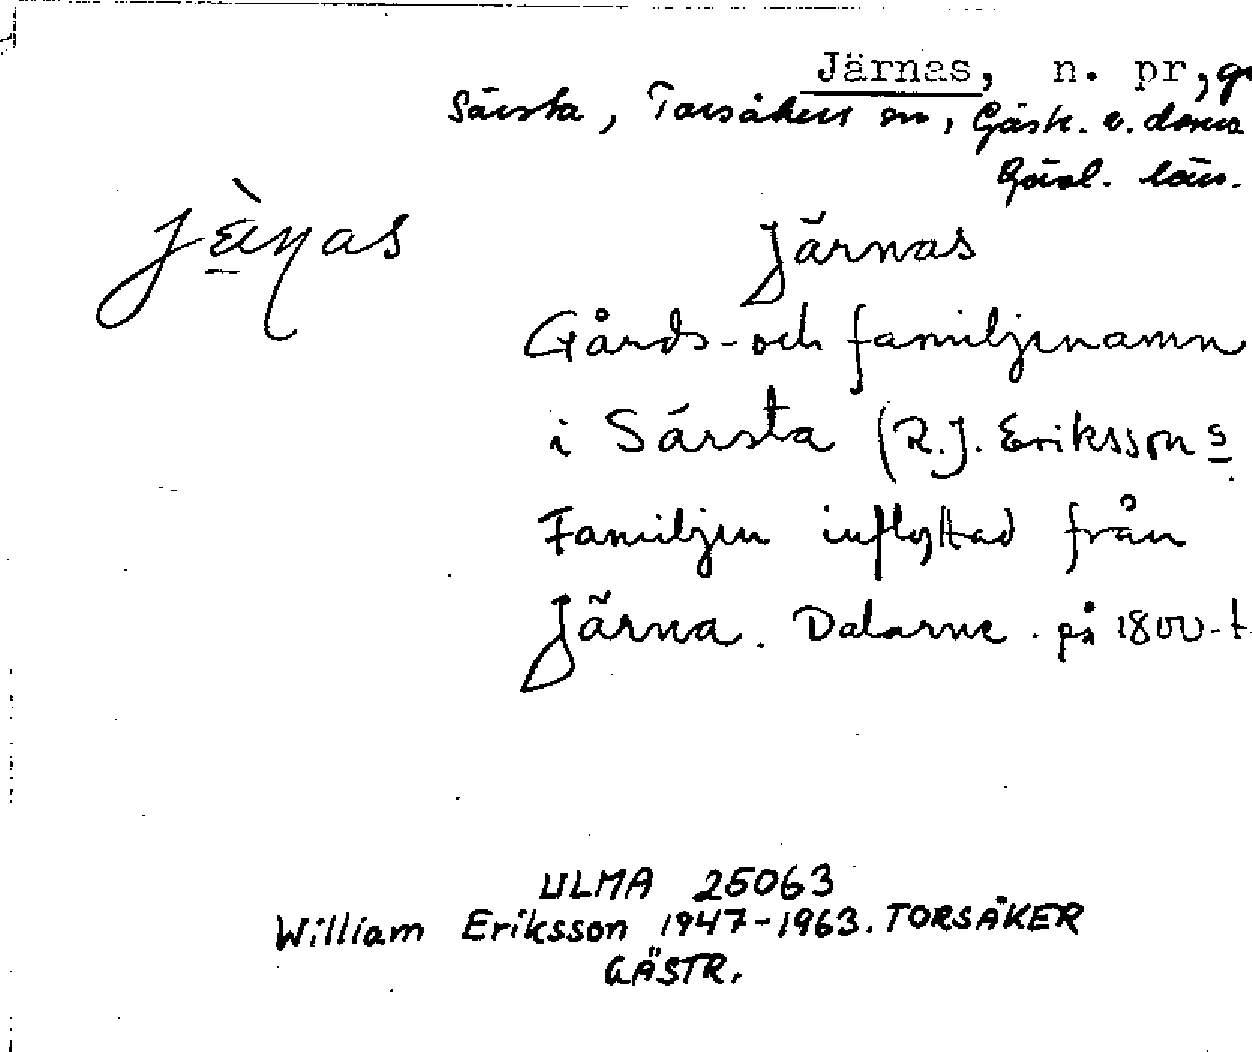 Järnas, n. pr,
Särsta, Torsåkers sn, Gästr. v. doms
Gävl. län.
Järnas
Gårds- och familjenamn
i Särsta (R.J. Erikssons
Familjen inflyttad från
Järna. Dalarne. på 1800-t
ULMA 25063
William Eriksson 1947-1963. TORSÅKER
GÄSTR.